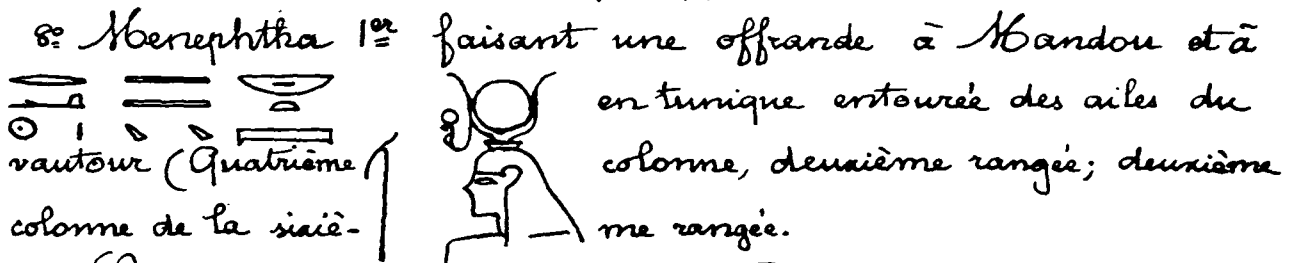 8º Menephtha 1er faisant une offrande à Mandou et à
en tunique entourée des ailes du
vautour (Quatrième colonne, deuxième rangée; deuxième
colonne de la sixiè- me rangée.